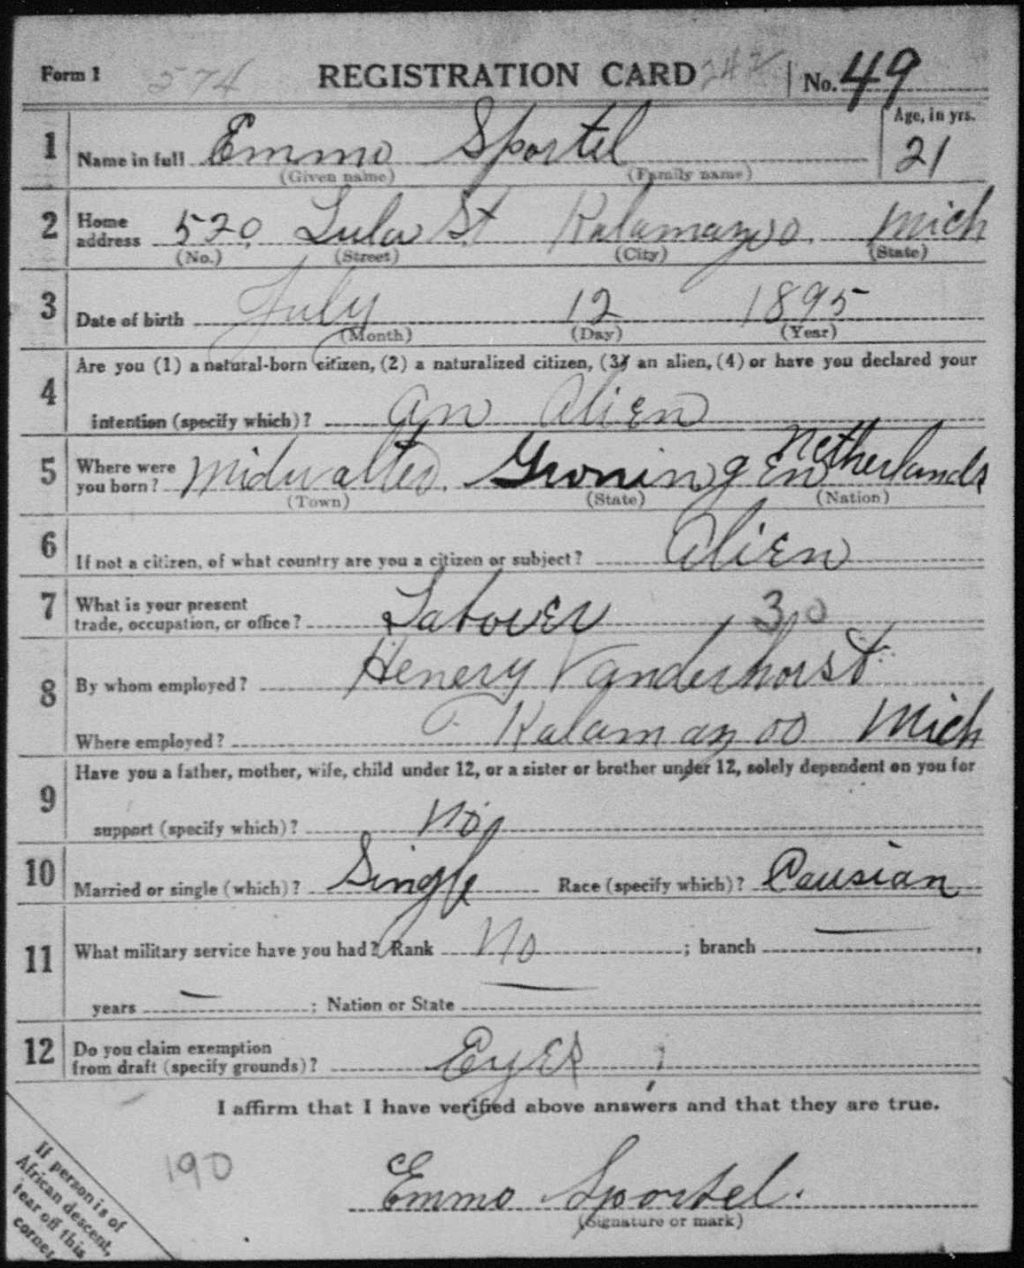 Form 1 574 REGISTRATION CARD 242 No. 49
1 Name in full Emmo Sportel Age, in yrs. 21
(Given name) (Family name)
2 Home address 520 Lulu St Kalamazoo Mich
(No.) (Street) (City) (State)
3 Date of birth July 12 1895
(Month) (Day) (Year)
4 Are you (1) a natural-born citizen, (2) a naturalized citizen, (3) an alien, (4) or have you declared your
intention (specify which)? an Alien
5 Where were you born? Midwalter Groningen Netherlands
(Town) (State) (Nation)
6 If not a citizen, of what country are you a citizen or subject? Alien
7 What is your present trade, occupation, or office? Laborer 30
8 By whom employed? Henery Vanderhorst
Where employed? Kalamazoo Mich
9 Have you a father, mother, wife, child under 12, or a sister or brother under 12, solely dependent on you for
support (specify which)? No
10 Married or single (which)? Single Race (specify which)? Causian
11 What military service have you had? Rank No ; branch —,
years — ; Nation or State —
12 Do you claim exemption from draft (specify grounds)? Eyes
I affirm that I have verified above answers and that they are true.
190
Emmo Sportel.
(Signature or mark)
If person is of
African descent,
tear off this
corner